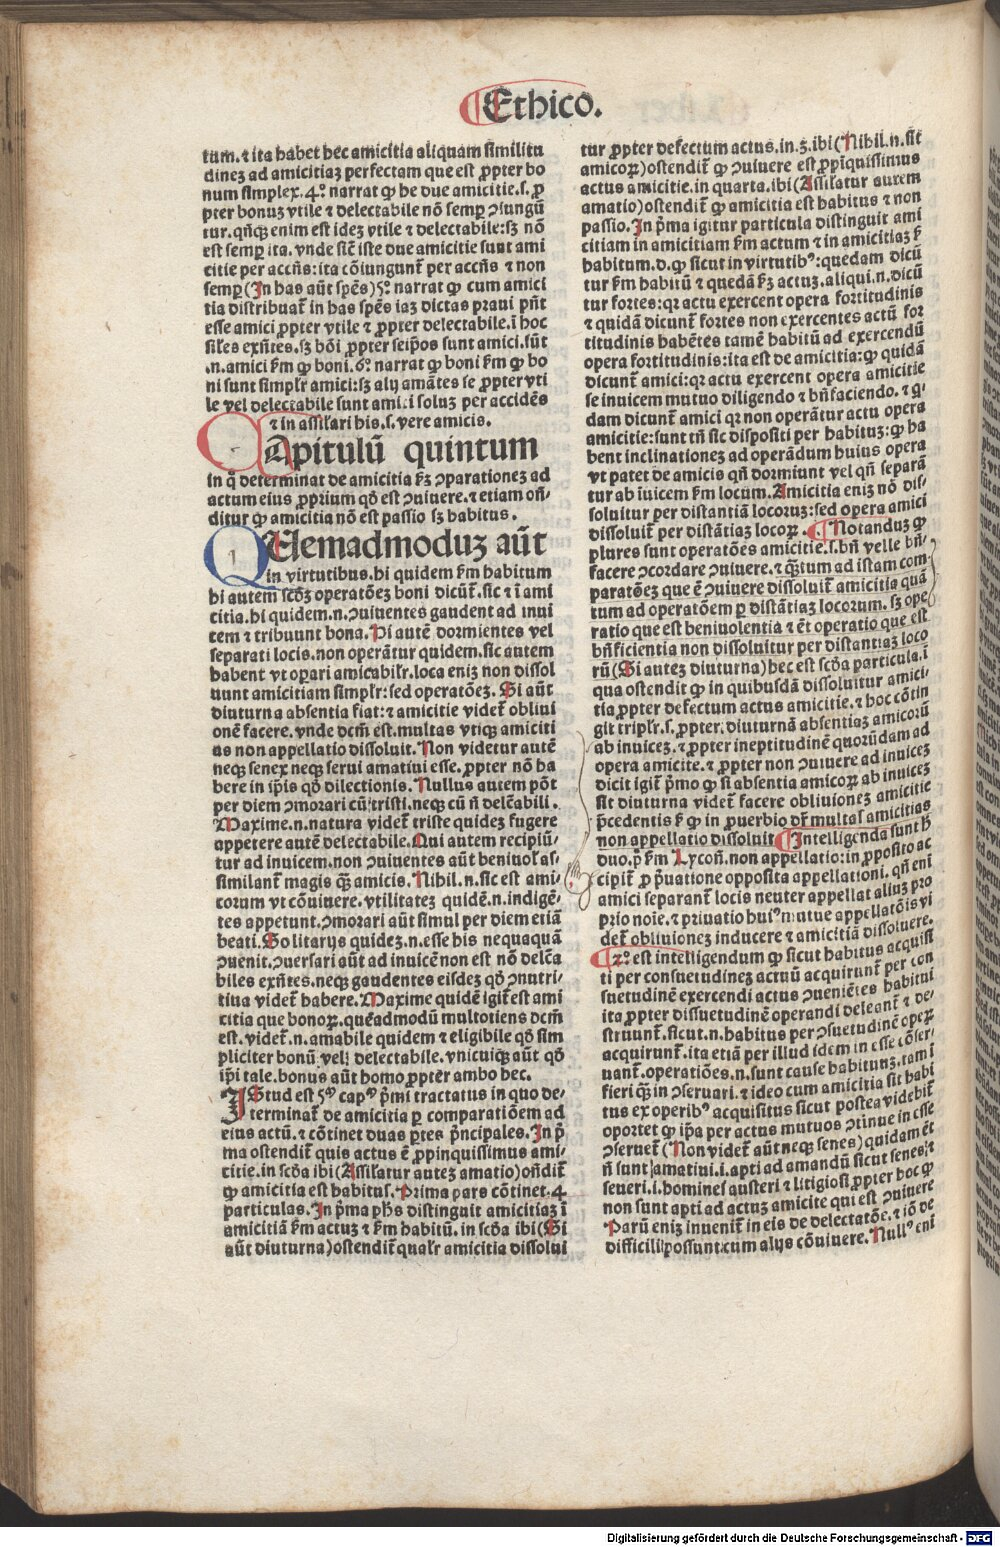 Ethico.
tum. ⁊ ita habet hec amicitia aliquam similitu
dineꝫ ad amicitiaꝫ perfectam que est ꝓpter bo
num simplex. 4º. narrat ꝙ he due amicitie .s. ꝓ
pter bonuꝫ vtile ⁊ delectabile nō semꝑ ↄiungū
tur. qñqꝫ enim est ideꝫ vtile ⁊ delectabile: sꝫ nō
est semꝑ ita. vnde sic̄ iste due amicitie sunt ami
citie per accn̄s: ita cōiungunt̄ per accn̄s ⁊ non
semꝑ (In has aūt spēs) 5º. narrat ꝙ cum amici
tia distribuat̄ in has spēs iaꝫ dictas praui pn̄t
esse amici ꝓpter vtile ⁊ ꝓpter delectabile. ī hoc
siles exn̄tes. sꝫ bōi ꝓpter seipōs sunt amici. sūt
.n. amici k̄m ꝙ boni. 6º. narrat ꝙ boni k̄m ꝙ bo
ni sunt simplr̄ amici: sꝫ alij amātes se ꝓpter vti
le vel delectabile sunt ami: i soluꝫ per accidēs
⁊ in assilari his .s. vere amicis.
CApitulū quintum
in q̄ determinat de amicitia k̄ꝫ ↄparationeꝫ ad
actum eius ꝓprium qd̄ est ↄuiuere. ⁊ etiam on̄
ditur ꝙ amicitia nō est passio sꝫ habitus.
QUemadmoduꝫ aūt
in virtutibus. hi quidem k̄m habitum
hi autem scd̄ꝫ operatōeꝫ boni dicūt̄. sic ⁊ ī ami
citia. hi quidem .n. ↄuiuentes gaudent ad inui
cem ⁊ tribuunt bona. Hi autē dormientes vel
separati locis. non operātur quidem. sic autem
habent vt oꝑari amicabilr̄. loca eniꝫ non dissol
uunt amicitiam simplr̄: sed operatōeꝫ. Si aūt
diuturna absentia fiat: ⁊ amicitie videt̄ obliui
onē facere. vnde dcm̄ est. multas vtiqꝫ amiciti
as non appellatio dissoluit. Non videtur autē
neqꝫ senex neqꝫ serui amatiui esse. ꝓpter nō ha
bere in ip̄is qd̄ dilectionis. Nullus autem pōt
per diem ↄmorari cū tristi. neqꝫ cū n̄ delc̄abili.
Maxime .n. natura videt̄ triste quideꝫ fugere
appetere autē delectabile. Qui autem recipiū/
tur ad inuicem. non ↄuiuentes aūt beniuol' as/
similant̄ magis qꝫ amicis. Nihil .n. sic est ami/
corum vt cōuiuere. vtilitateꝫ quidē .n. indigē/
tes appetunt. ↄmorari aūt simul per diem etiā
beati. Solitarijs quideꝫ .n. esse his nequaquā
ↄuenit. ↄuersari aūt ad inuicē non est nō delc̄a
biles exn̄tes. neqꝫ gaudentes eisdeꝫ qd̄ ↄnutri/
tiua videt̄ habere. Maxime quidē igit̄ est ami
citia que bonoꝝ. quēadmodū multotiens dcm̄
est. videt̄ .n. amabile quidem ⁊ eligibile qd̄ sim
pliciter bonū vel delectabile. vnicuiqꝫ aūt qd̄
ip̄i tale. bonus aūt homo ꝓpter ambo hec.
IStud est 5ᵐ capᵐ p̄mi tractatus in quo de/
terminat̄ de amicitia ꝑ comparatiōem ad
eius actū. ⁊ cōtinet duas ꝑtes p̄ncipales. In p̄
ma ostendit̄ quis actus ē ꝓpinquissimus ami/
citie. in scd̄a ibi (Assilatur auteꝫ amatio) on̄dit̄
ꝙ amicitia est habitus. Prima pars cōtinet 4
particulas. In p̄ma ph̄s distinguit amicitiaꝫ ī
amicitiā k̄m actuꝫ ⁊ k̄m habitū. in scd̄a ibi (Si
aūt diuturna) ostendit̄ qualr̄ amicitia dissolui
tur ꝓpter defectum actus. in .3. ibi (Nihil .n. sit̄
amicoꝝ) ostendit̄ ꝙ ↄuiuere est ꝓpiquissimus
actus amicitie. in quarta. ibi (Assilatur autem
amatio) ostendit̄ ꝙ amicitia est habitus ⁊ non
passio. In p̄ma igitur particula distinguit ami
citiam in amicitiam k̄m actum ⁊ in amicitiaꝫ k̄
habitum. d. ꝙ sicut in virtutibꝰ: quedam dicū
tur k̄m habitū ⁊ quedā k̄ꝫ actuꝫ. aliqui .n. dicū
tur fortes: qꝛ actu exercent opera fortitudinis
⁊ quidā dicunt̄ fortes non exercentes actū for
titudinis habētes tamē habitū ad exercendū
opera fortitudinis: ita est de amicitia: ꝙ quidā
dicunt̄ amici: qꝛ actu exercent opera amicitie
se inuicem mutuo diligendo ⁊ bn̄faciendo. ⁊ q̄
dam dicunt̄ amici qꝛ non operātur actu opera
amicitie: sunt tn̄ sic dispositi per habituꝫ: ꝙ ha
bent inclinationeꝫ ad operādum huius opera
vt patet de amicis qn̄ dormiunt vel qn̄ separā
tur ab īuicem k̄m locum. Amicitia eniꝫ nō dis/
soluitur per distantiā locoruꝫ: sed opera amici
dissoluit̄ per distātiaꝫ locoꝝ. Notanduꝫ ꝙ
plures sunt operatōes amicitie .s. bn̄ velle bn̄
facere ↄcordare ↄuiuere. ⁊ qꝫtum ad istam com
paratōeꝫ que ē ↄuiuere dissoluit̄ amicitia quā
tum ad operatōem ꝑ distātiaꝫ locorum. sꝫ ope
ratio que est beniuolentia ⁊ ēt operatio que est
bn̄ficientia non dissoluitur per distantiaꝫ loco
rū (Si auteꝫ diuturna) hec est scd̄a particula. ī
qua ostendit ꝙ in quibusdā dissoluitur amici/
tia ꝓpter defectum actus amicitie. ⁊ hoc cōtin
git triplr̄ .s. ꝓpter. diuturnā absentiaꝫ amicorū
ab inuiceꝫ. ⁊ ꝓpter ineptitudinē quorūdam ad
opera amicite. ⁊ ꝓpter non ↄuiuere ad inuiceꝫ
dicit igit̄ p̄mo ꝙ si absentia amicoꝝ ab inuiceꝫ
sit diuturna videt̄ facere obliuioneꝫ amicitie
p̄cedentis k̄ ꝙ in ꝓuerbio dr̄ multas amicitias
non appellatio dissoluit Intelligenda sunt h̄
duo. p̄ k̄m Lycon̄. non appellatio: in ꝓposito ac
cipit̄ ꝓ p̄uatione opposita appellationi. qn̄ eni
amici separant̄ locis neuter appellat alius pro
prio noīe. ⁊ priuatio huiꝰ mutue appellatōis vi
det̄ obliuioneꝫ inducere ⁊ amicitiā dissoluere.
2º. est intelligendum ꝙ sicut habitus acquisi
ti per consuetudineꝫ actuū acquirunt̄ per con
suetudinē exercendi actus ↄueniētes habitui
ita ꝓpter dissuetudinē operandi deleant̄ ⁊ de/
struunt̄. sicut .n. habitus per ↄsuetudinē operꝝ
acquirunt̄. ita etiā per illud idem in esse cōser/
uant̄. operatiōes .n. sunt cause habituuꝫ. tam ī
fieri qꝫ in ↄseruari. ⁊ ideo cum amicitia sit habi
tus ex operibꝰ acquisitus sicut postea videbit̄
oportet ꝙ ip̄a per actus mutuos ↄtinue in esse
ↄseruet̄ (Non videt̄ aūt neqꝫ senes) quidam ēt
n̄ sunt amatiui. i. apti ad amandū sicut senes: ⁊
seueri .i. homines austeri ⁊ litigiosi ꝓpter hoc ꝙ
non sunt apti ad actuꝫ amicite qui est ↄuiuere
Parū eniꝫ inuenit̄ in eis de delectatōe. ⁊ iō de
difficili possunt cum alijs cōuiuere. Nullꝰ eni
Digitalisierung gefördert durch die Deutsche Forschungsgemeinschaft - DFG